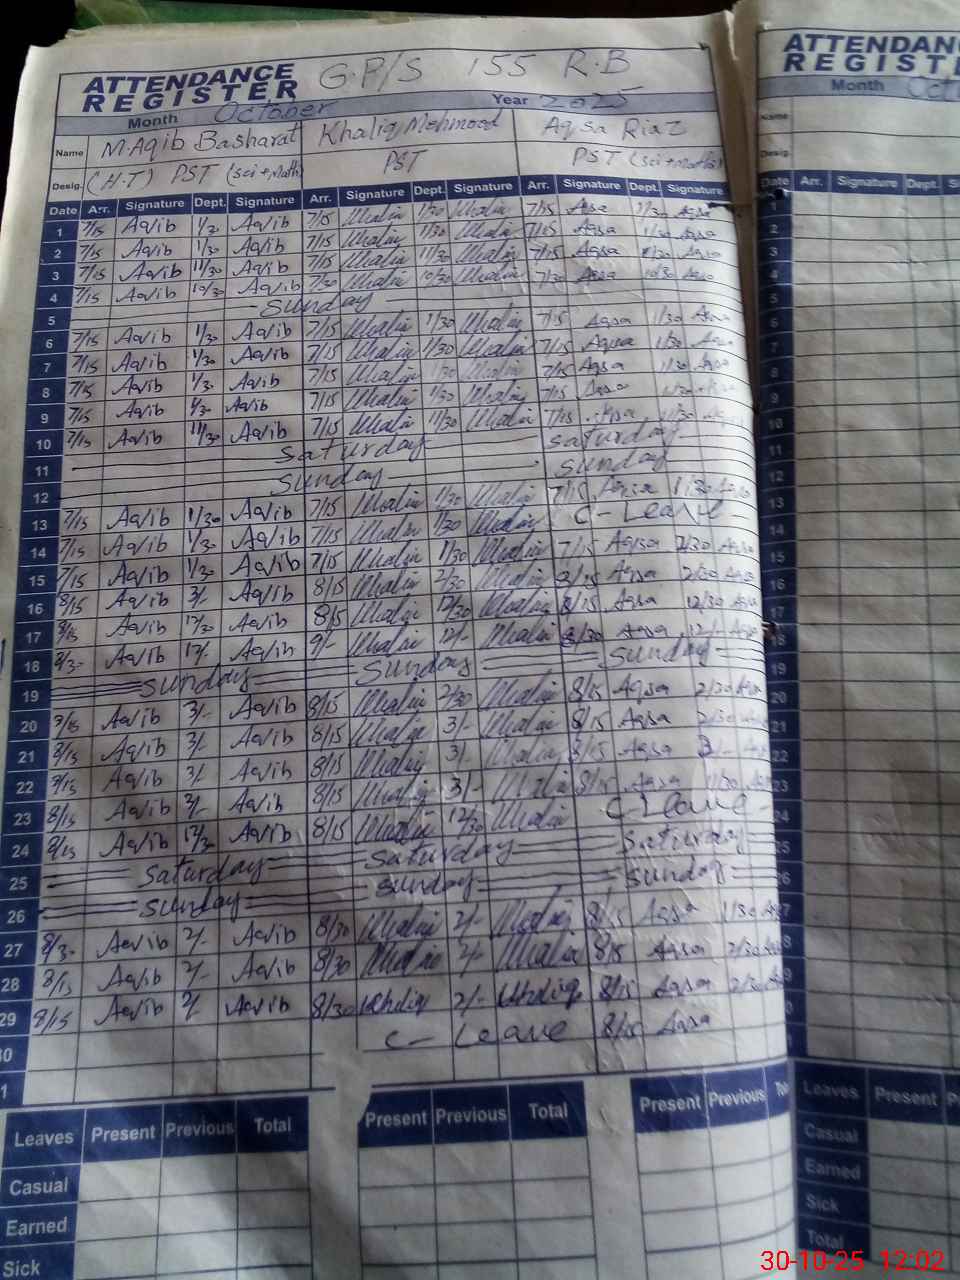 ATTENDANCE REGISTER G.P/S 155 R.B
Month October Year 2025
Name M.Aqib Basharat Khaliq Mehmood Aqsa Riaz
Desig. (H.T) PST (sci+Math) PST PST (sci+Maths)
Date Arr. Signature Dept. Signature Arr. Signature Dept. Signature Arr. Signature Dept. Signature
1 7/15 Aqib 1/30 Aqib 7/15 Khaliq 1/30 Khaliq 7/15 Aqsa 1/30 Aqsa
2 7/15 Aqib 1/30 Aqib 7/15 Khaliq 1/30 Khaliq 7/15 Aqsa 1/30 Aqsa
3 7/15 Aqib 11/30 Aqib 7/15 Khaliq 11/30 Khaliq 7/15 Aqsa 11/30 Aqsa
4 7/15 Aqib 10/30 Aqib 7/30 Khaliq 10/30 Khaliq 7/30 Aqsa 10/30 Aqsa
5 Sunday
6 7/15 Aqib 1/30 Aqib 7/15 Khaliq 1/30 Khaliq 7/15 Aqsa 1/30 Aqsa
7 7/15 Aqib 1/30 Aqib 7/15 Khaliq 1/30 Khaliq 7/15 Aqsa 1/30 Aqsa
8 7/15 Aqib 1/30 Aqib 7/15 Khaliq 1/30 Khaliq 7/15 Aqsa 1/30 Aqsa
9 7/15 Aqib 1/30 Aqib 7/15 Khaliq 1/30 Khaliq 7/15 Aqsa 1/30 Aqsa
10 7/15 Aqib 11/30 Aqib 7/15 Khaliq 11/30 Khaliq 7/15 Aqsa 11/30 Aqsa
11 Saturday Saturday
12 Sunday Sunday
13 7/15 Aqib 1/30 Aqib 7/15 Khaliq 1/30 Khaliq 7/15 Aqsa 1/30 Aqsa
14 7/15 Aqib 1/30 Aqib 7/15 Khaliq 1/30 Khaliq C- Leave
15 7/15 Aqib 1/30 Aqib 7/15 Khaliq 1/30 Khaliq 7/15 Aqsa Aqsa
16 8/15 Aqib 3/- Aqib 8/15 Khaliq 2/30 Khaliq 8/15 Aqsa 2/30 Aqsa
17 8/15 Aqib 12/30 Aqib 8/15 Khaliq 12/30 Khaliq 8/15 Aqsa 12/30 Aqsa
18 8/30 Aqib 12/- Aqib 9/- Khaliq 12/- Khaliq 8/30 Aqsa 12/- Aqsa
19 Sunday Sunday Sunday
20 8/15 Aqib 3/- Aqib 8/15 Khaliq 2/30 Khaliq 8/15 Aqsa 2/30 Aqsa
21 8/15 Aqib 3/- Aqib 8/15 Khaliq 3/- Khaliq 8/15 Aqsa 2/30 Aqsa
22 8/15 Aqib 3/- Aqib 8/15 Khaliq 3/- Khaliq 8/15 Aqsa 3/- Aqsa
23 8/15 Aqib 3/- Aqib 8/15 Khaliq 3/- Khaliq 8/15 Aqsa 11/30 Aqsa
24 8/15 Aqib 12/30 Aqib 8/15 Khaliq 12/30 Khaliq C Leave
25 Saturday Saturday Saturday
26 Sunday Sunday Sunday
27 8/30 Aqib 2/- Aqib 8/30 Khaliq 2/- Khaliq 8/15 Aqsa 1/30 Aqsa
28 8/15 Aqib 2/- Aqib 8/30 Khaliq 2/- Khaliq 8/15 Aqsa 2/30 Aqsa
29 8/15 Aqib 2/- Aqib 8/30 Khaliq 2/- Khaliq 8/15 Aqsa 2/30 Aqsa
30 C- Leave 8/15 Aqsa
1
Leaves Present Previous Total Present Previous Total Present Previous
Casual
Earned
Sick
ATTENDAN
REGISTE
Month Oct
Name
Desig.
Date Arr. Signature Dept.
1
2
3
4
5
6
7
8
9
10
11
12
13
14
15
16
17
18
19
20
21
22
23
24
25
26
Leaves Present
Casual
Earned
Sick
Total
30-10-25 12:02